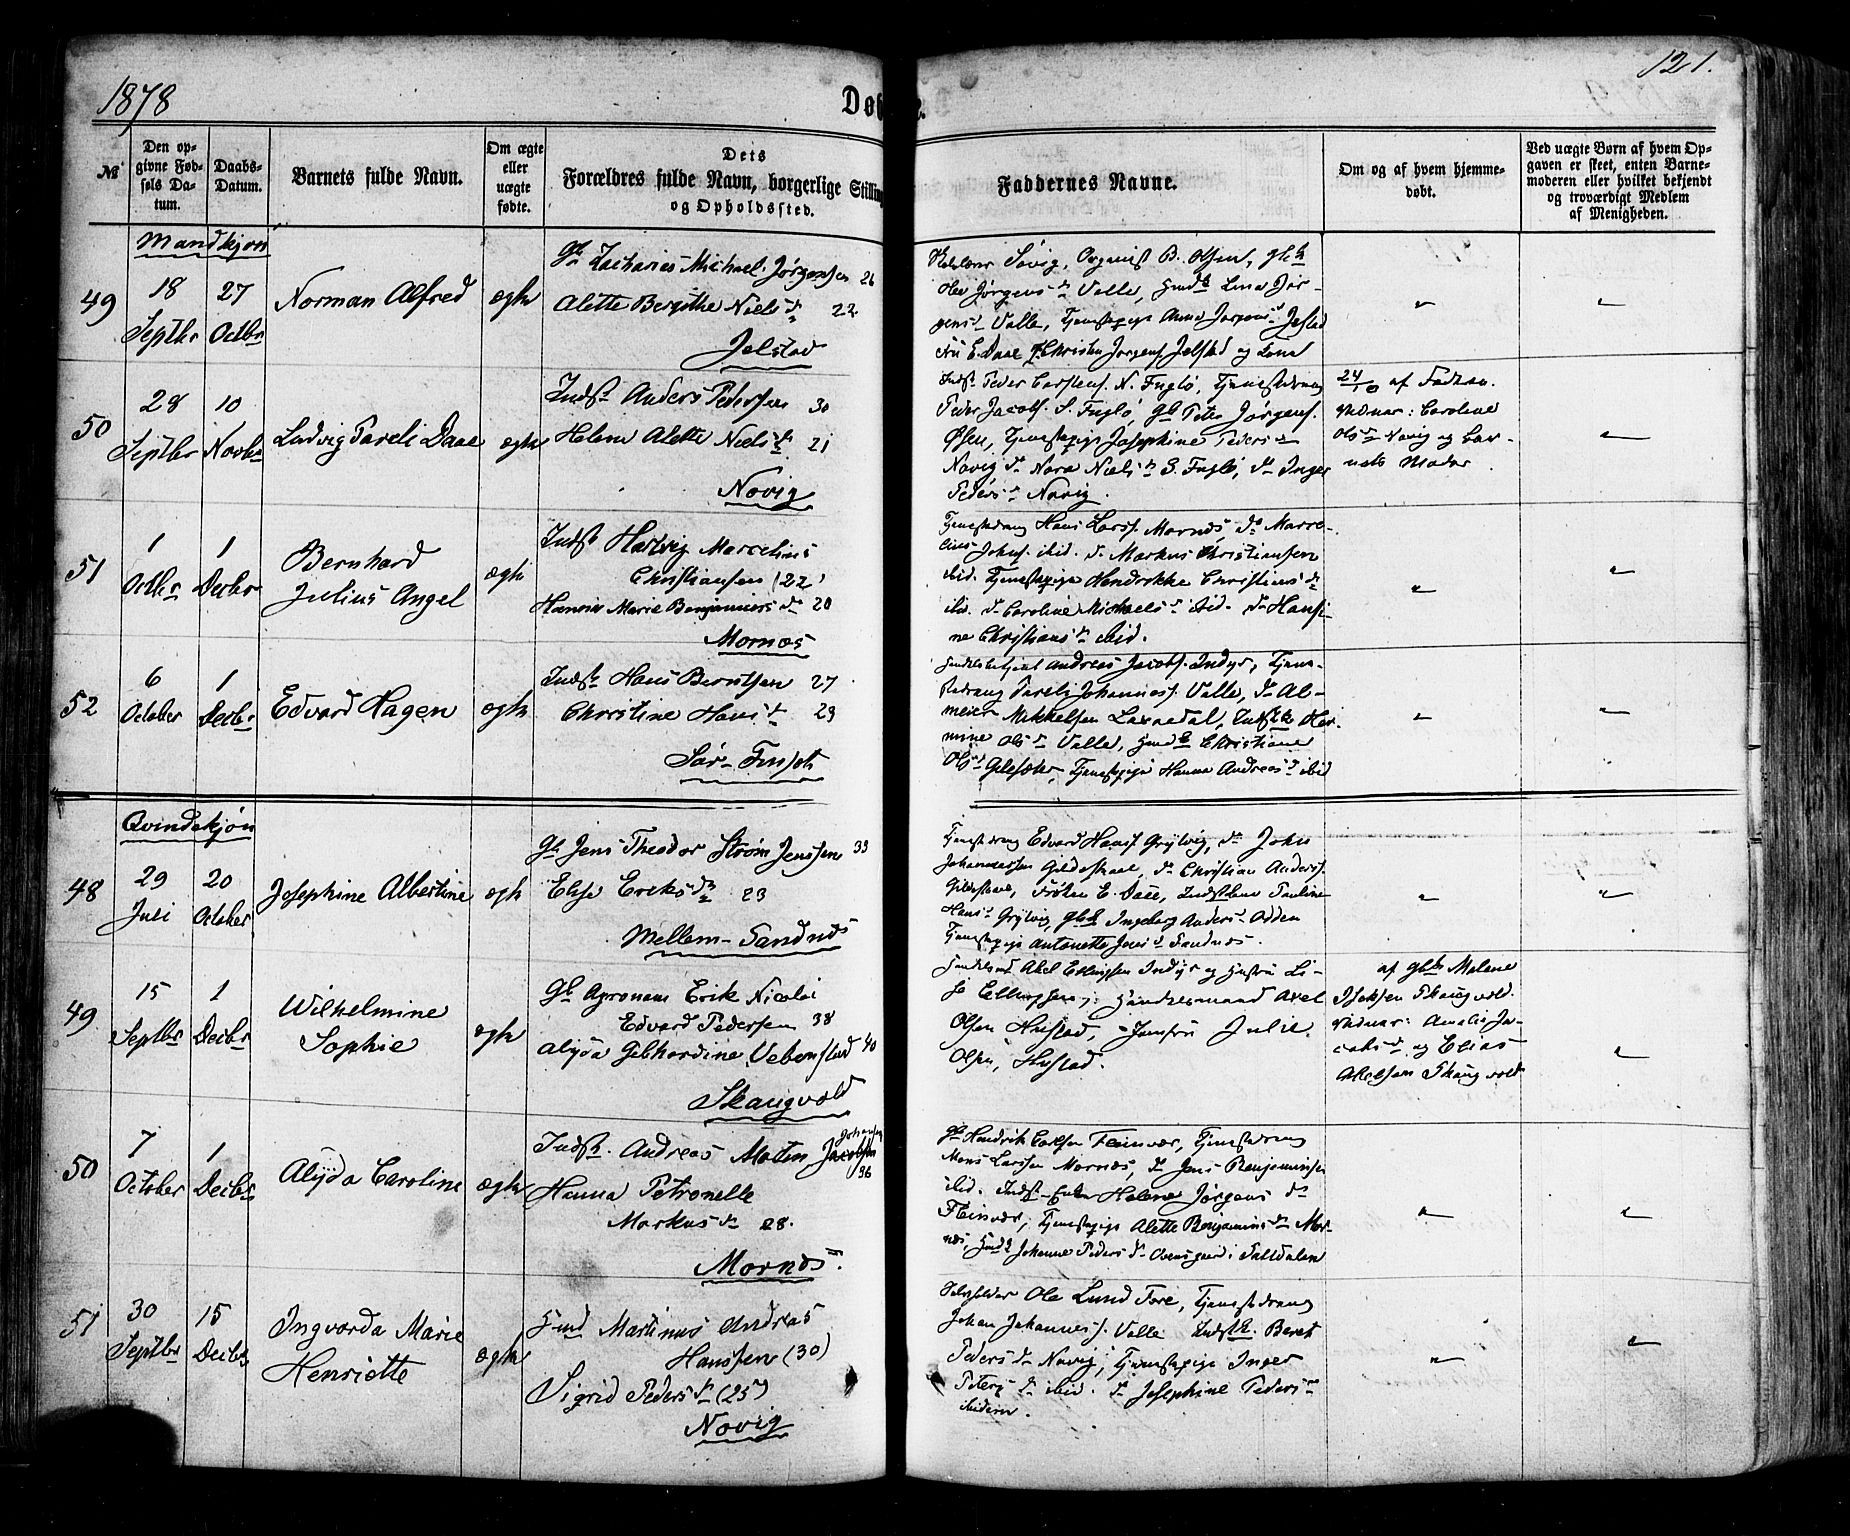 1878
121.
Døbte.
No
Den op-
givne Fød-
sels Da-
tum.
Daabs-
Datum.
Barnets fulde Navn.
Om ægte
eller
uægte
fødte.
Dets
Forældres fulde Navn, borgerlige Stilling
og Opholdssted.
Faddernes Navne.
Om og af hvem hjemme-
døbt.
Ved uægte Børn af hvem Op-
gaven er skeet, enten Barne-
moderen eller hvilket bekjendt
og troværdigt Medlem
af Menigheden.
Mandkjøn
49
18
Septbr
27
Octbr
Norman Alfred
ægte
Gb Zacharias Michael Jørgensen 26
Alette Bergithe Niels d. 22
Jelstad
Søvig, Organist B. Olsen,
Ole Jørgens Valle, Lina Jør-
gens d Valle, Tjenestepige Anna Jørgens d Jelstad
E. Daae Christen Jørgens. Jelstad og Kona
50
28
Septbr
10
Novbr
Ludvig Pareli Daae
ægte
Indst. Anders Pedersen 30
Helene Alette Niels d. 21
Novig
Indst. Peder Carstens. N. Fuglø, Tjenestedreng
Peder Jacobs. S. Fuglø, Gb Peter Jørgens.
Øsen, Tjenestepige Josephine Peders dn
Novig dn Nora Niels dn S. Fuglø, dn Inger
Peders dn Novig.
24/10 af Fadren.
Vidner: Caroline
Ols dn Novig og Bar-
nets Moder.
51
1
Octbr
1
Decbr
Bernhard
Julius Angel
ægte
Indst. Hartvig Marcelius
Christiansen (22)
Hansine Marie Benjamins dn 20
Mornæs
Tjenestedreng Hans Larss. Mornæs, do Marce-
lius Johns. ibid. do Markus Christiansen
ibid. Tjenestepige Hendrikke Christians dn
ibid. dn Caroline Michaels dn ibid. dn Hansi-
ne Christians dn ibid.
52
6
October
1
Decbr
Edvard Hagen
ægte
Indst. Hans Berntsen 27
Christine Hans d. 29
Sør-Finset
Handelsbetjent Andreas Jacobs. Indyr, Tjene-
stedreng Pareli Johanness. Valle, do Al-
meier Mikkelsen Laxaadal, Indstk Her-
mine Ols dn Valle, Christiane
Ols d Gilesæter, Tjenestepige Hanna Andreas d ibid
Qvindekjøn
48
29
Juli
20
October
Josephine Albertine
ægte
Gb Jens Theodor Strøm Jenssen 33
Elise Eriks dn 23
Mellem-Sandnæs
Tjenestedreng Edvard Hans. Grytvig, do John
Johannessen Gildeskaal, do Christian Anderss.
Gildeskaal, Frøken E. Daae, Pauline
Hans d Grytvig, Gbk Ingeborg Anders d Odden
Tjenestepige Antonette Jens d Sandnæs.
49
15
Septbr
1
Decbr
Wilhelmine
Sophie
ægte
Gb Agronom Erik Nicolai
Edvard Pedersen 38
Alyda Gebhardine Vebenstad 40
Skaugvold
Handelsmd Axel Ellingsen Indyr og Hustru Li-
se Ellingsen; Handelsmand Axel
Olsen Hustad, Jomfru Julie
Olsen, Hustad.
af Gbk Malene
Isaksen Skaugvold.
Vidner: Amalie Ja-
cobs dn og Elias
Akelsen Skaugvold
50
7
October
1
Decbr
Alyda Caroline
ægte
Indst. Andreas Martin Jacobsen
Johansen
36
Hanna Petronelle
Markus dn 28.
Mornæs.
Gb Hendrik Carlsen Fleinvær, Tjenestedreng
Mons Larssen Mornæs, do Jens Benjaminsen
ibid. Indst-Enke Helene Jørgens dn
Fleinvær, Tjenestepige Alette Benjamins dn Mor-
næs, Johanne Peders dn Evensgaard i Saltdalen
51
30
Septbr
15
Decbr
Ingvarda Marie
Henriette
ægte
Hmd Martinus Andreas
Hanssen (30)
Sigrid Peders dn (25)
Novig
Ole Lund Fore, Tjenestedreng
Johan Johanness. Valle Indstk. Beret
Peders dn Novig; Tjenestepige Inger
Peters dn ibid. dn Josephine Peders dn
ibidem.